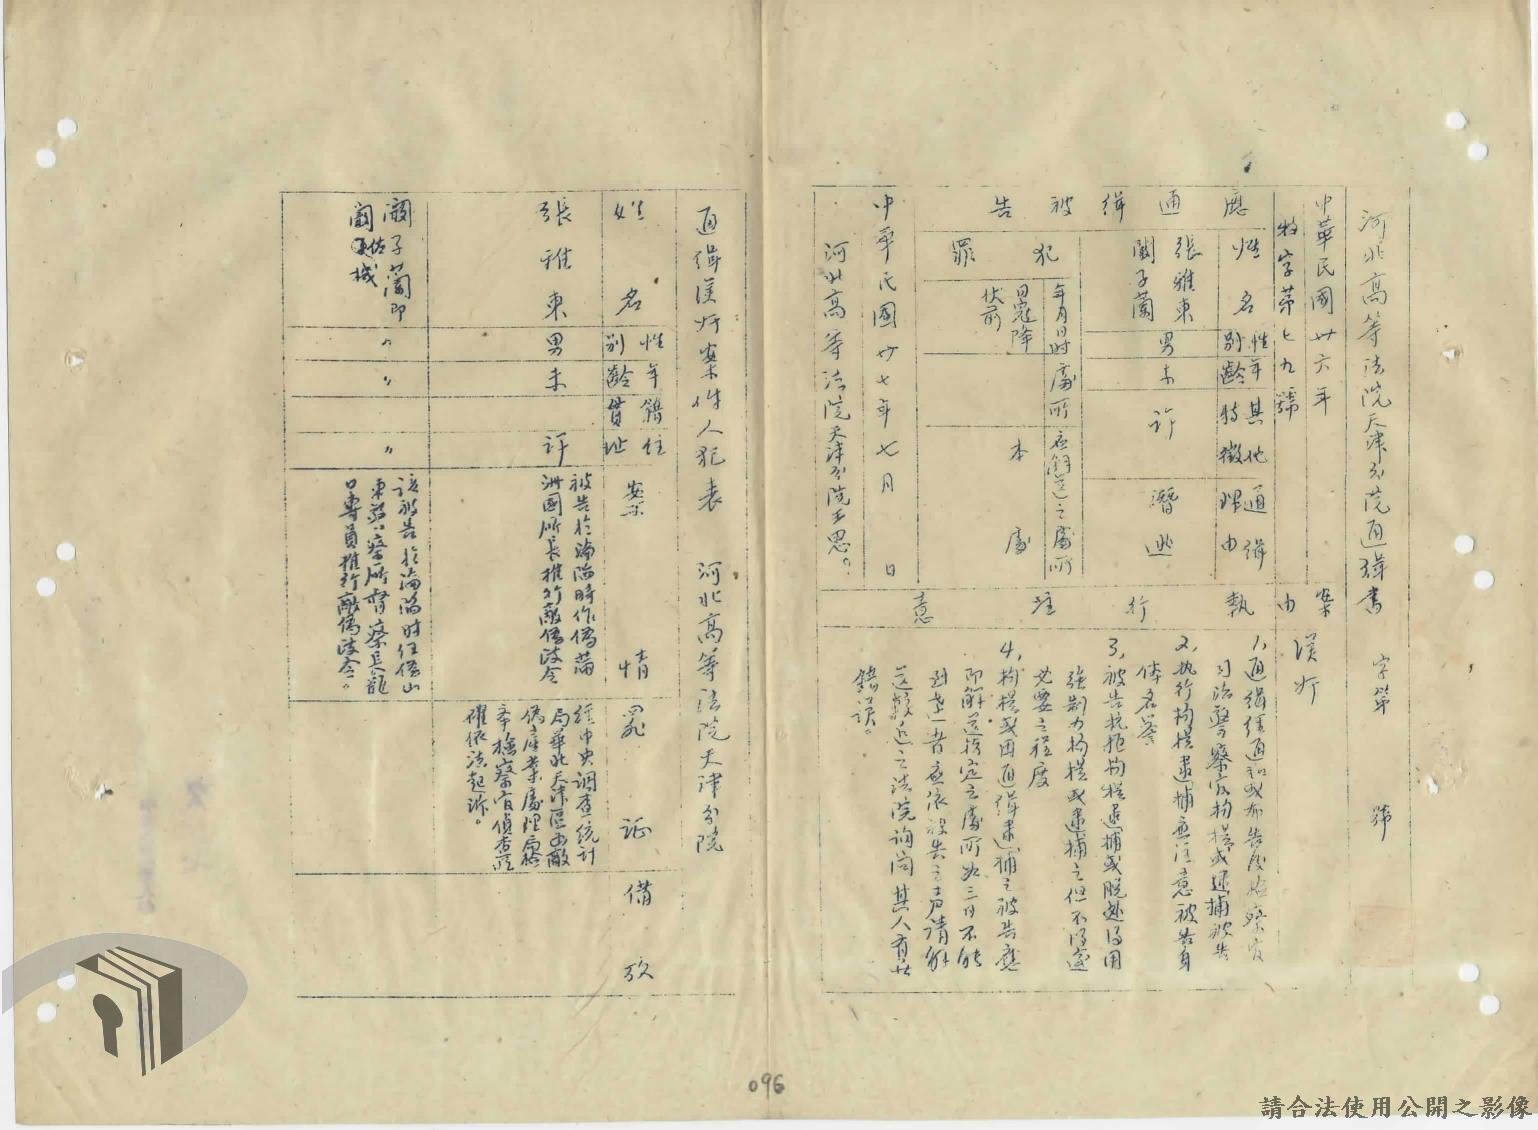 河北高等法院天津分院通緝書　字第　號
中華民國卅六年
特字第七九號
案由
漢奸
應通緝被告
姓名
性別
年齡
其他特徵
通緝理由
張雅東
闞子蘭
男
未
詳
潛逃
犯罪
年月日時
處所
應解送之處所
日寇降伏前
本處
中華民國卅七年七月　日
河北高等法院天津分院王思。
執行注意
1、通緝經通知或布告後檢察官
司法警察官拘提或逮捕被告
2、执行拘提逮捕應注意被告身
体名譽
3、被告抗拒拘提逮捕或脫逃得用
強制力拘提或逮捕之但不得逾
必要之程度
4、拘提或因通緝逮捕之被告應
即解送指定之處所如三日不能
到達者應依被告之声請解
送較近之法院詢問其人有無
錯誤。
通緝漢奸案件人犯表　河北高等法院天津分院
姓名
性別
年齡
籍貫
住址
案情
罪証
備攷
張雅東
男
未
詳
被告於淪陷時作偽滿
洲國所長推行敵偽政令
經中央調查統計
局華北天津區
偽產業處理局
本檢察官偵查
確依法起訴。
闞子蘭即
闞
〃
〃
〃
該被告於淪陷時任偽山
東警察所督察長龍
口專員推行敵偽政令。
096
請合法使用公開之影像